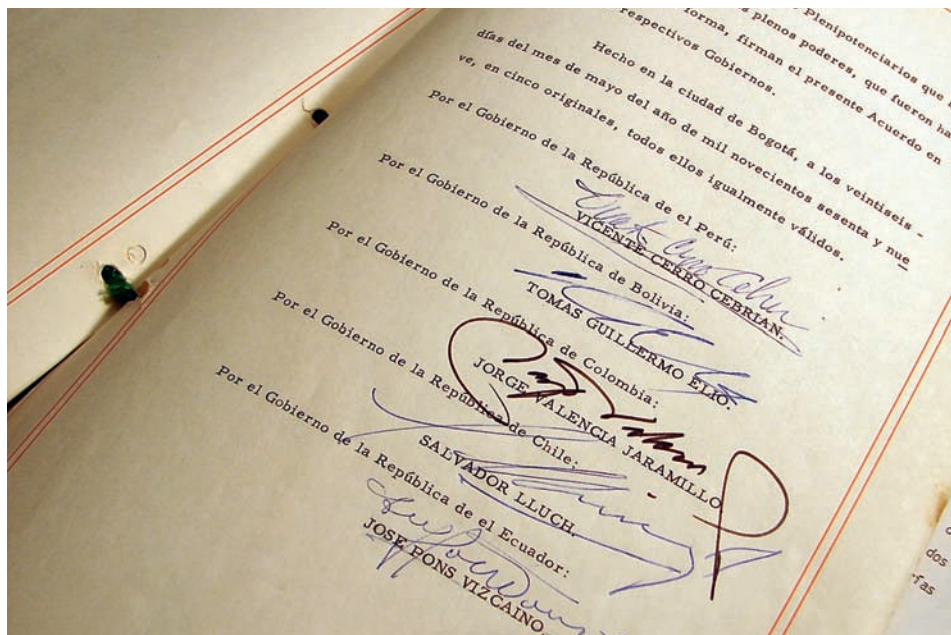 Plenipotenciarios que
plenos poderes, que fueron ha
forma, firman el presente Acuerdo en
respectivos Gobiernos.
Hecho en la ciudad de Bogotá, a los veintiseis -
días del mes de mayo del año de mil novecientos sesenta y nue
ve, en cinco originales, todos ellos igualmente válidos.
Por el Gobierno de la República de el Perú:
VICENTE CERRO CEBRIAN.
Por el Gobierno de la República de Bolivia:
TOMAS GUILLERMO ELIO.
Por el Gobierno de la República de Colombia:
JORGE VALENCIA JARAMILLO
Por el Gobierno de la República de Chile:
SALVADOR LLUCH.
Por el Gobierno de la República de el Ecuador:
JOSE PONS VIZCAINO.
dos